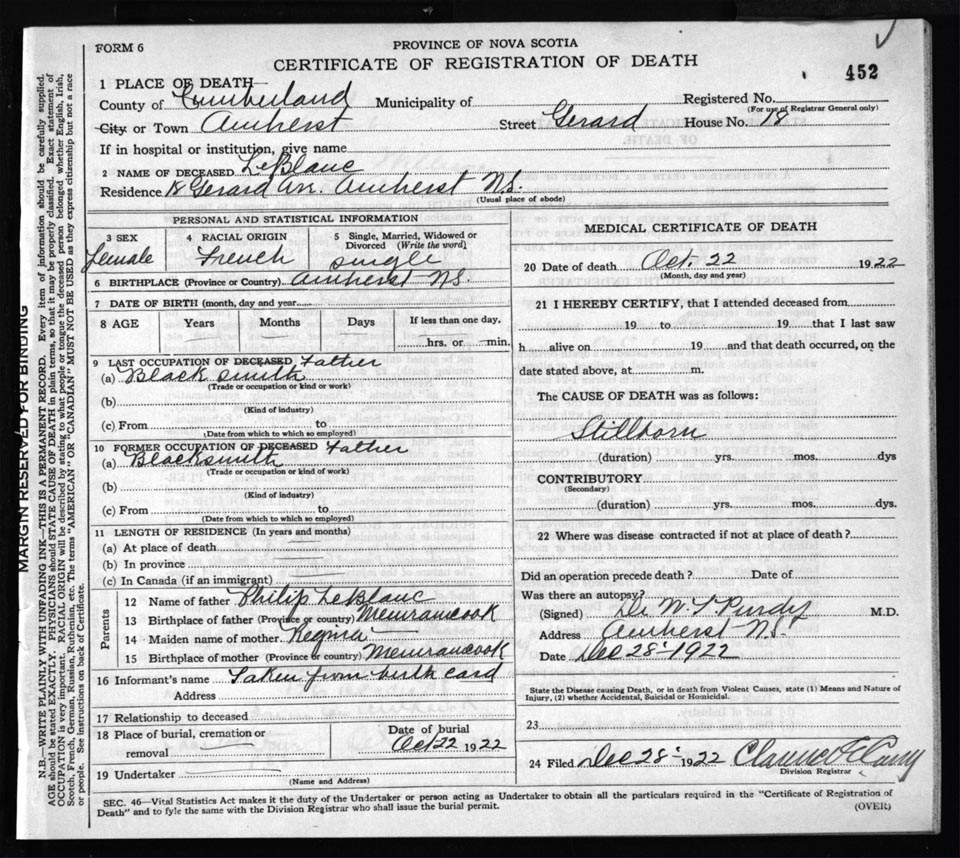 FORM 6
PROVINCE OF NOVA SCOTIA
CERTIFICATE OF REGISTRATION OF DEATH
452
1 PLACE OF DEATH
County of Cumberland Municipality of Registered No.
(For use of Registrar General only)
City or Town Amherst Street Gerard House No. 18
If in hospital or institution, give name
2 NAME OF DECEASED LeBlanc
Residence 18 Gerard Av. Amherst N.S.
(Usual place of abode)
PERSONAL AND STATISTICAL INFORMATION
3 SEX 4 RACIAL ORIGIN 5 Single, Married, Widowed or Divorced (Write the word)
Female French single
6 BIRTHPLACE (Province or Country) Amherst N.S.
7 DATE OF BIRTH (month, day and year)
8 AGE Years Months Days If less than one day,
hrs. or min.
9 LAST OCCUPATION OF DECEASED Father
(a) Black smith
(Trade or occupation or kind or work)
(b)
(Kind of industry)
(c) From to
(Date from which to which so employed)
10 FORMER OCCUPATION OF DECEASED Father
(a) Blacksmith
(Trade or occupation or kind of work)
(b)
(Kind of industry)
(c) From to
(Date from which to which so employed)
11 LENGTH OF RESIDENCE (In years and months)
(a) At place of death
(b) In province
(c) In Canada (if an immigrant)
Parents
12 Name of father Philip LeBlanc
13 Birthplace of father (Province or country) Memramcook
14 Maiden name of mother Regina
15 Birthplace of mother (Province or country) Memramcook
16 Informant's name Taken from birth card
Address
17 Relationship to deceased
18 Place of burial, cremation or removal Date of burial
Oct 22 1922
19 Undertaker
(Name and Address)
MEDICAL CERTIFICATE OF DEATH
20 Date of death Oct. 22 1922
(Month, day and year)
21 I HEREBY CERTIFY, that I attended deceased from
19 to 19 that I last saw
h alive on 19 and that death occurred, on the
date stated above, at m.
The CAUSE OF DEATH was as follows:
Stillborn
(duration) yrs. mos. dys
CONTRIBUTORY
(Secondary)
(duration) yrs. mos. dys.
22 Where was disease contracted if not at place of death?
Did an operation precede death? Date of
Was there an autopsy?
(Signed) Dr W T Purdy M.D.
Address Amherst N.S.
Date Dec 28 - 1922
State the Disease causing Death, or in death from Violent Causes, state (1) Means and Nature of
Injury, (2) whether Accidental, Suicidal or Homicidal.
23
24 Filed Dec 28 - 1922
Division Registrar
SEC. 46—Vital Statistics Act makes it the duty of the Undertaker or person acting as Undertaker to obtain all the particulars required in the "Certificate of Registration of
Death" and to fyle the same with the Division Registrar who shall issue the burial permit.
(OVER)
MARGIN RESERVED FOR BINDING
N.B.—WRITE PLAINLY WITH UNFADING INK—THIS IS A PERMANENT RECORD. Every item of information should be carefully supplied.
AGE should be stated EXACTLY. PHYSICIANS should STATE CAUSE OF DEATH in plain terms, so that it may be properly classified. Exact statement of
OCCUPATION is very important. RACIAL ORIGIN will be described by stating to what people or tongue the deceased person belonged whether English, Irish,
Scotch, French, German, Russian, Ruthenian, etc. The terms "AMERICAN" OR "CANADIAN" MUST NOT BE USED as they express citizenship but not a race
or people. See instructions on back of Certificate.